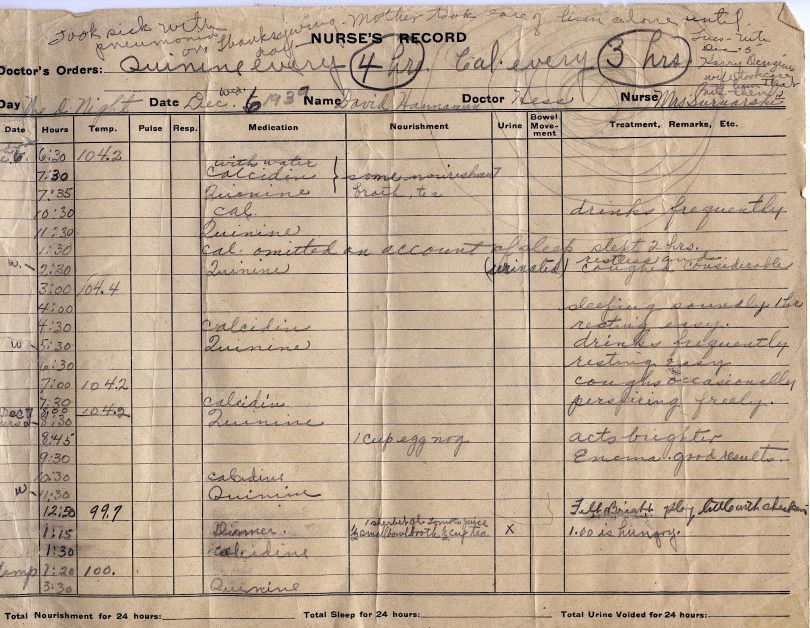 Took sick with pneumonia on Thanksgiving day - Mother took care of him alone until
Tues - nite
Dec - 5
NURSE'S RECORD
Doctor's Orders: Quinine every 4 hr. Cal. every 3 hrs.
Day Night Date Dec. 6 1939 Name David Doctor Hess Nurse Mrs
Wed.
Date Hours Temp. Pulse Resp. Medication Nourishment Urine Bowel Movement Treatment, Remarks, Etc.
6:30 104.2
with water
7:30 Calcidin } some nourishment
7:35 Quinine broth, tea
10:30 Cal. drinks frequently
11:30 Quinine
1:30 Cal. omitted on account of sleep slept 2 hrs.
W. 2:30 Quinine (urinated) restless coughed considerable
3:00 104.4
4:00 sleeping soundly
4:30 Calcidin resting easy.
W 5:30 Quinine drinks frequently
6:30 resting easy
7:00 104.2 coughs occasionally
7:30 Calcidin perspiring freely.
Dec 7 8:00 104.2
8:30 Quinine
8:45 1 cup egg nog acts brighter
9:30 Enema. good results.
10:30 calcidine
W 11:30 Quinine
12:50 99.7 Felt Bright play little with checkers
1:15 Dinner. 1 sherbet gl. tomato juice ½ small bowl broth ½ cup tea X 1.00 is hungry.
1:30 Calcidine
Temp 100.
3:30 Quinine
Total Nourishment for 24 hours: Total Sleep for 24 hours: Total Urine Voided for 24 hours: